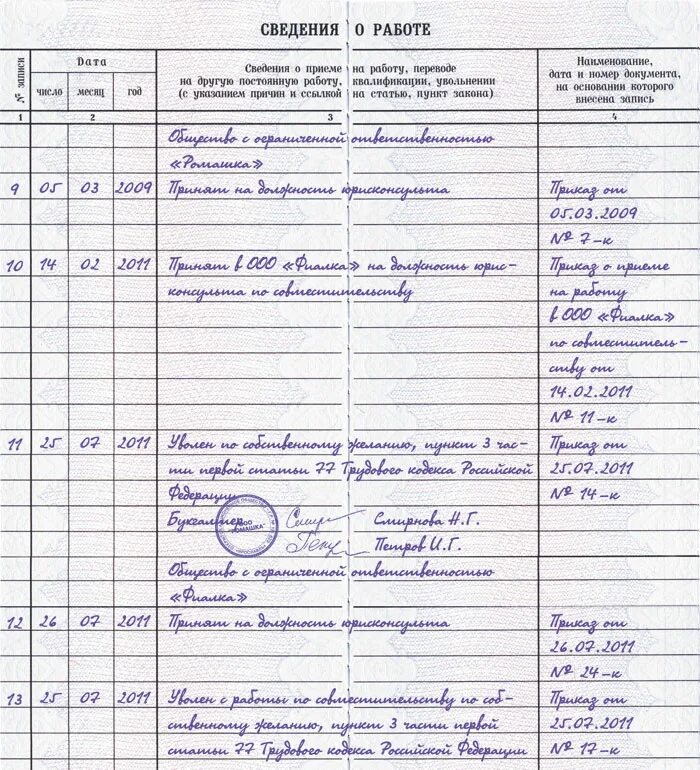 СВЕДЕНИЯ О РАБОТЕ
№ записи
Дата
число месяц год
Сведения о приеме на работу, переводе
на другую постоянную работу, квалификации, увольнении
(с указанием причин и ссылкой на статью, пункт закона)
Наименование,
дата и номер документа,
на основании которого
внесена запись
1 2 3 4
Общество с ограниченной ответственностью
«Ромашка»
9 05 03 2009 Принят на должность юрисконсульта Приказ от
05.03.2009
№ 7-к
10 14 02 2011 Принят в ООО «Фиалка» на должность юрис- Приказ о приеме
консульта по совместительству на работу
в ООО «Фиалка»
по совместитель-
ству от
14.02.2011
№ 11-к
11 25 07 2011 Уволен по собственному желанию, пункт 3 час- Приказ от
ти первой статьи 77 Трудового кодекса Российской 25.07.2011
Федерации № 14-к
Бухгалтер Смирнова Н.Г.
ООО
"РОМАШКА"
Петров И.Г.
Общество с ограниченной ответственностью
«Фиалка»
12 26 07 2011 Принят на должность юрисконсульта Приказ от
26.07.2011
№ 24-к
13 25 07 2011 Уволен с работы по совместительству по соб- Приказ от
ственному желанию, пункт 3 части первой 25.07.2011
статьи 77 Трудового кодекса Российской Федерации № 17-к